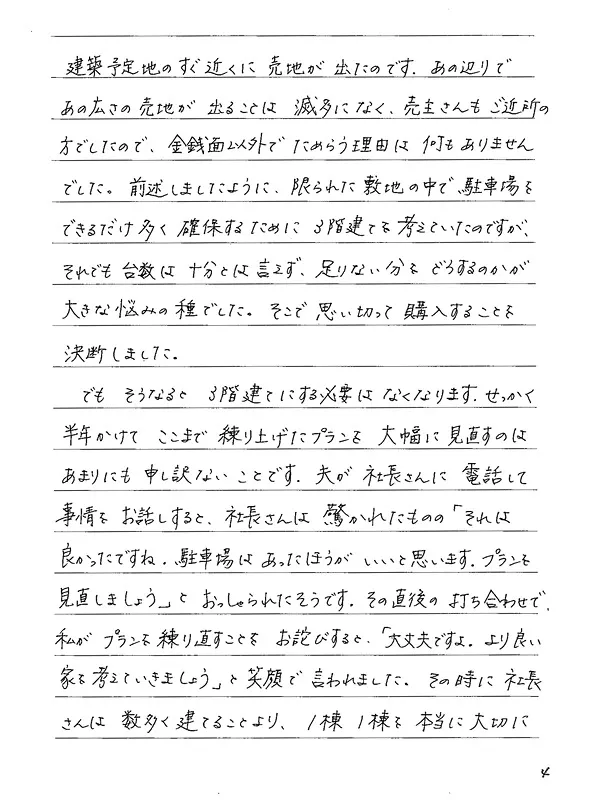 建築予定地のすぐ近くに売地が出たのです。あの辺りで
あの広さの売地が出ることは滅多になく、売主さんもご近所の
方でしたので、金銭面以外でためらう理由は何もありません
でした。前述しましたように、限られた敷地の中で駐車場を
できるだけ多く確保するために3階建てを考えていたのですが、
それでも台数は十分とは言えず、足りない分をどうするのかが
大きな悩みの種でした。そこで思い切って購入することを
決断しました。
でもそうなると3階建てにする必要はなくなります。せっかく
半年かけてここまで練り上げたプランを大幅に見直すのは
あまりにも申し訳ないことです。夫が社長さんに電話して
事情をお話しすると、社長さんは驚かれたものの「それは
良かったですね。駐車場はあったほうがいいと思います。プランを
見直しましょう」とおっしゃられたそうです。その直後の打ち合わせで、
私がプランを練り直すことをお詫びすると、「大丈夫ですよ。より良い
家を考えていきましょう」と笑顔で言われました。その時に社長
さんは数多く建てることより、1棟1棟を本当に大切に
4